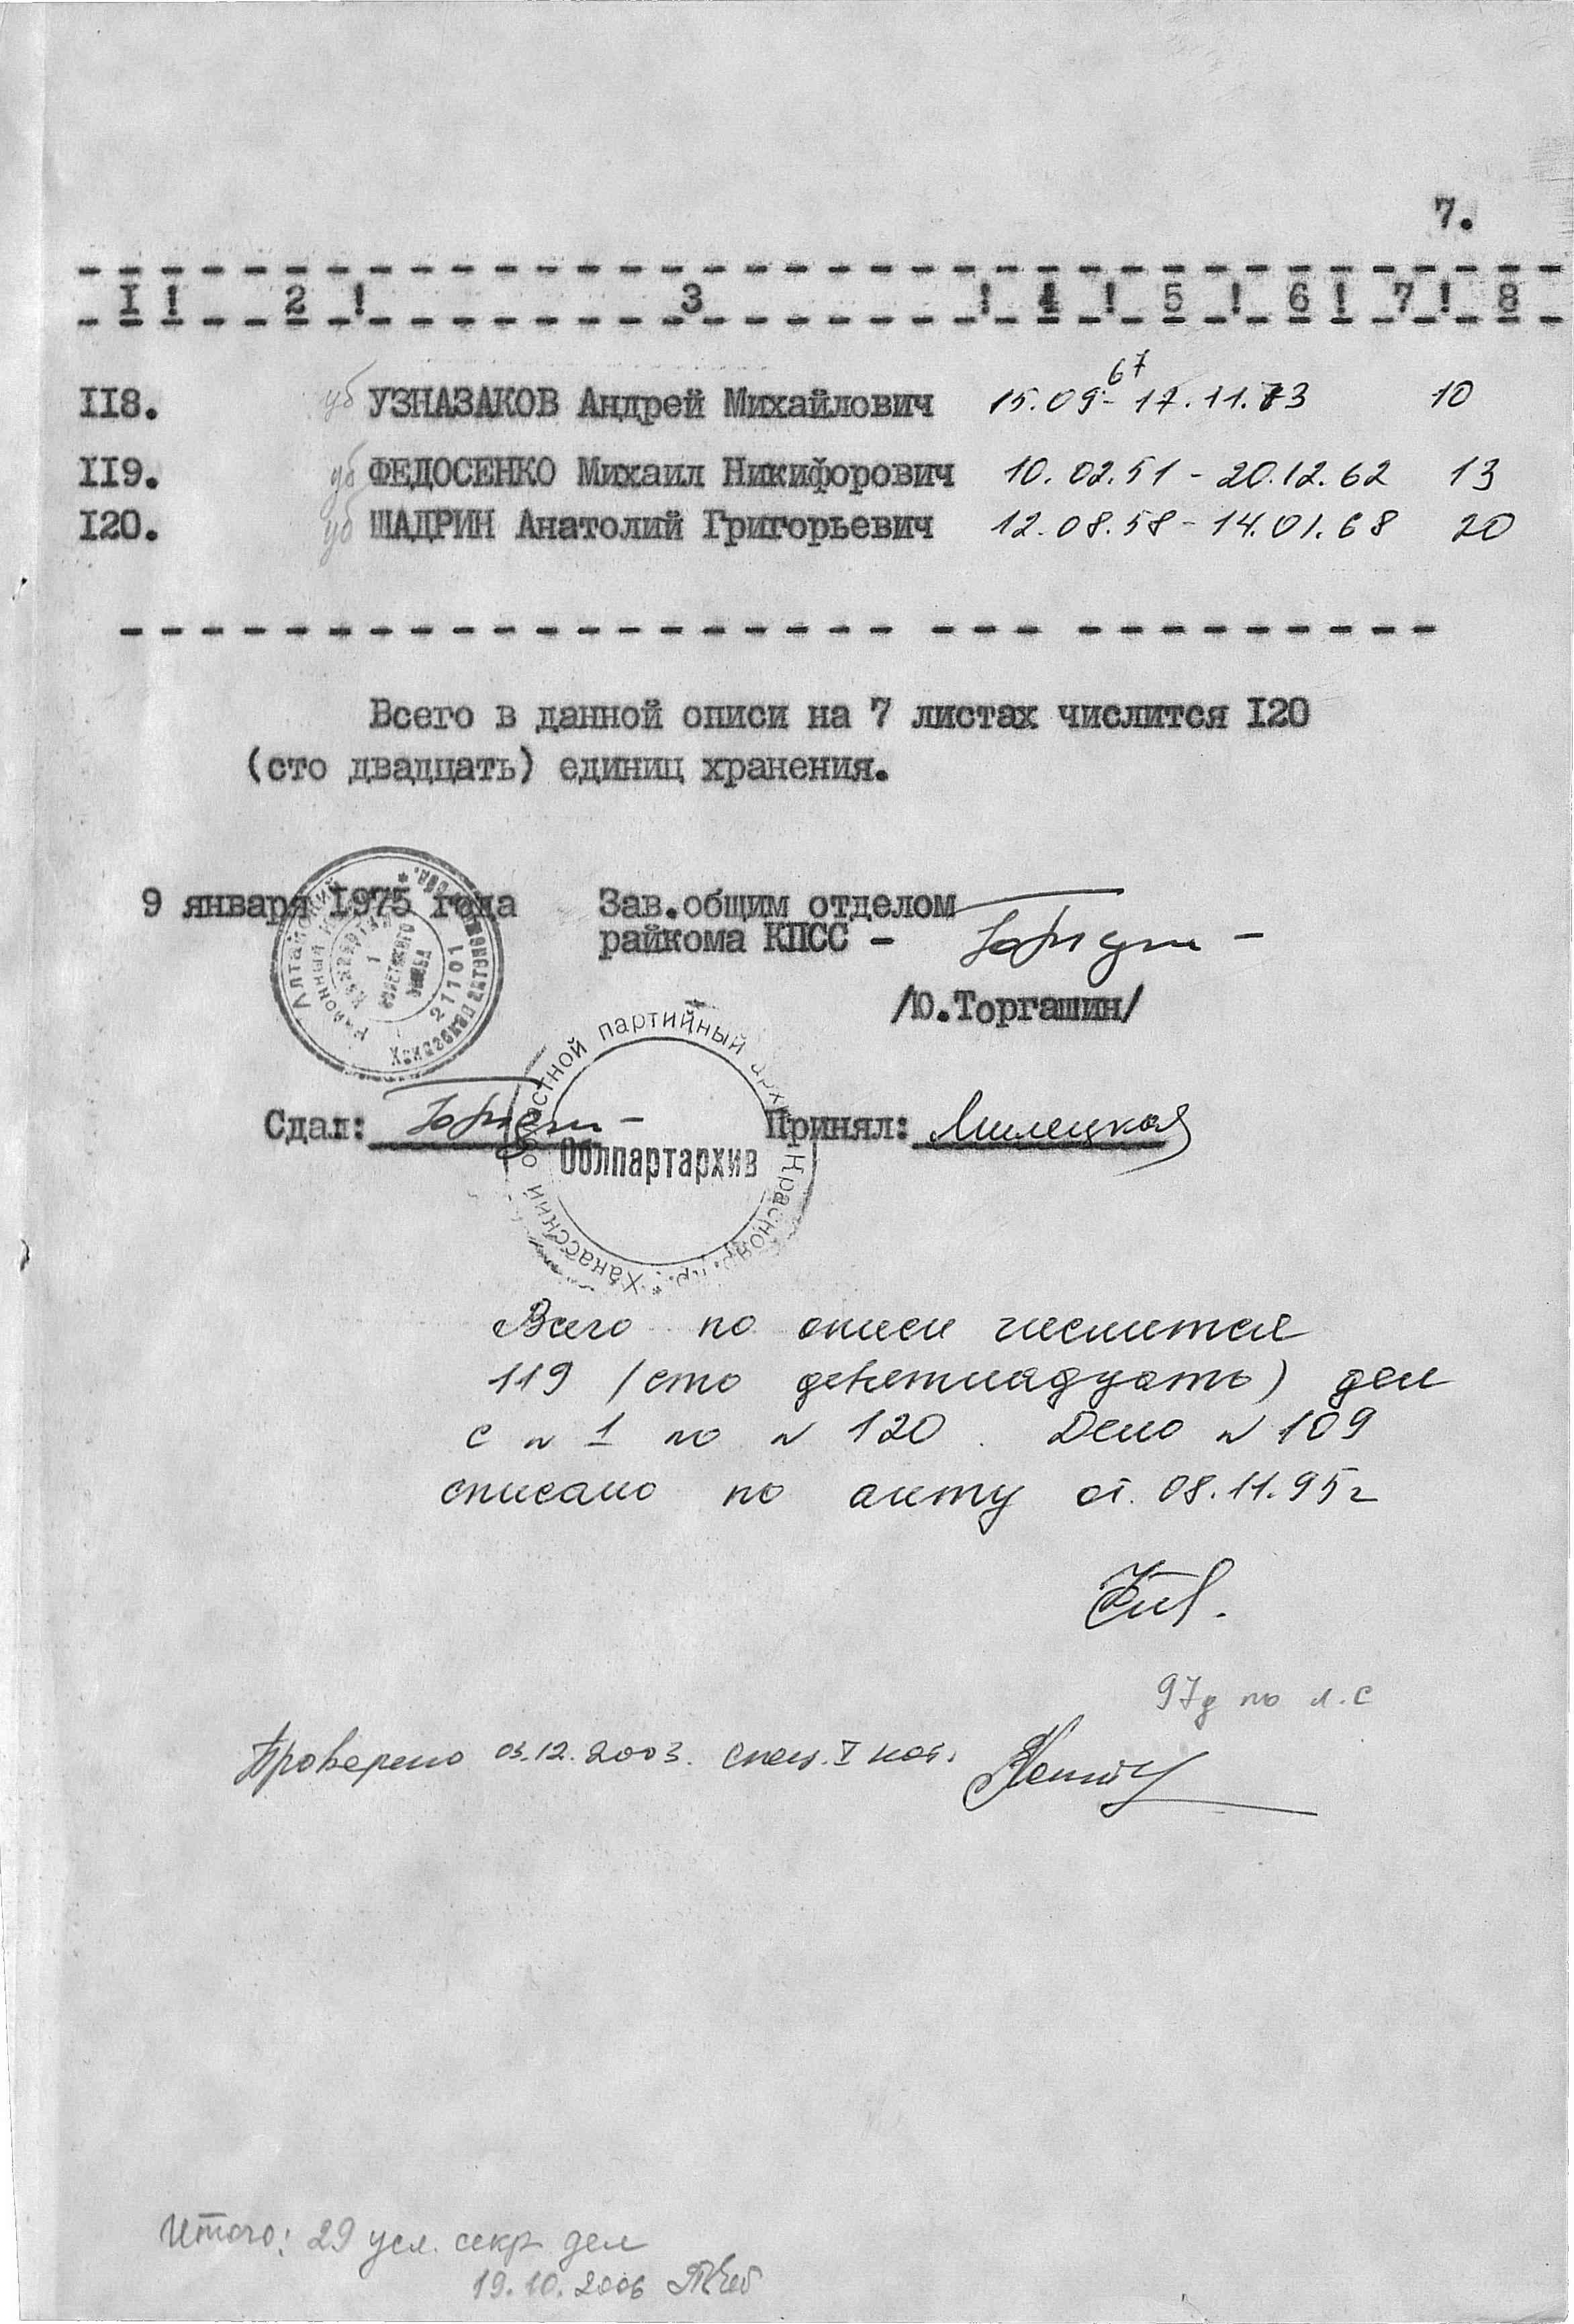 7.
I ! 2 ! 3 ! 4 ! 5 ! 6 ! 7 ! 8
II8. уб УЗНАЗАКОВ Андрей Михайлович 15.09.67 - 17.11.73 10
II9. уб ФЕДОСЕНКО Михаил Никифорович 10.02.51 - 20.12.62 13
I20. уб ШАДРИН Анатолий Григорьевич 12.08.58 - 14.01.68 20
Всего в данной описи на 7 листах числится I20
(сто двадцать) единиц хранения.
9 января I975 года Зав.общим отделом
райкома КПСС -
/Ю.Торгашин/
Алтайский
21101
Хакасский областной партийный архив Краснояр. кр.
Облпартархив
Сдал: Принял: Милецкая
Всего по описи числится
119 /сто девятнадцать) дел
с № 1 по № 120. Дело № 109
списано по акту от. 08.11.95г
97д по л.с
Проверено 03.12.2003. спец. I кат.
Итого: 29 усл. секр дел
19.10.2006